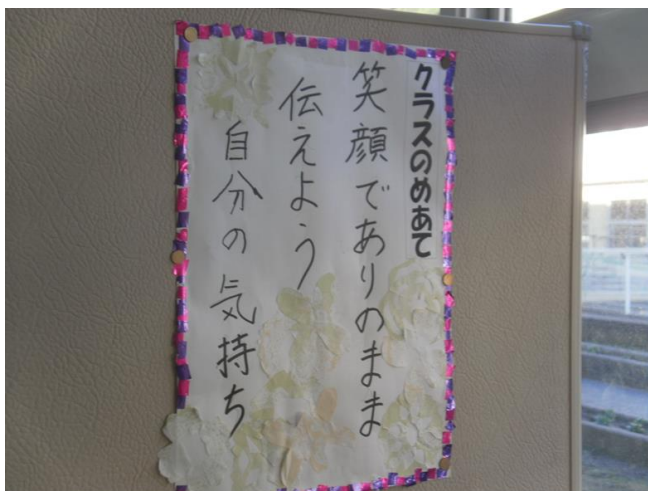 クラスのめあて
笑顔でありのまま
伝えよう
自分の気持ち